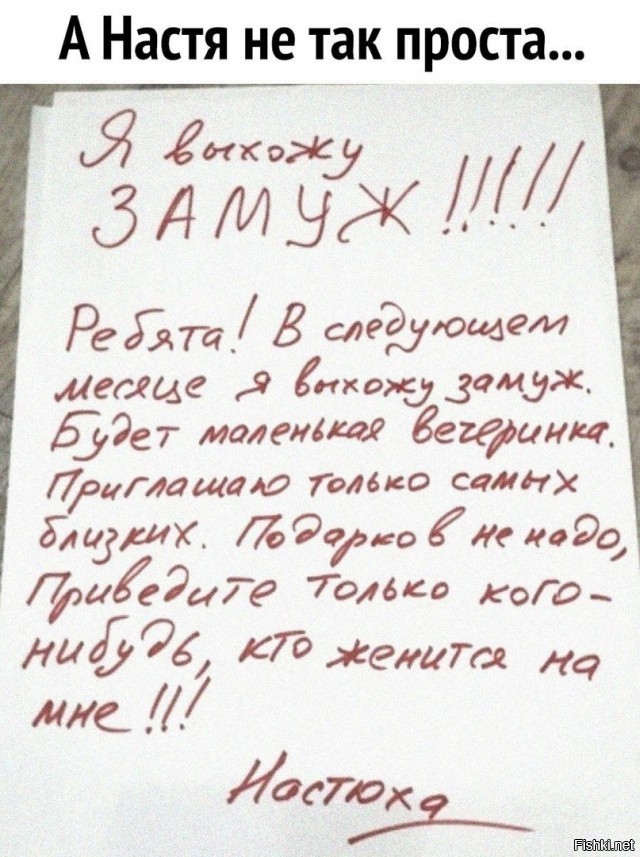 А Настя не так проста...
Я выхожу
ЗАМУЖ !!!!!
Ребята! В следующем
месяце я выхожу замуж.
Будет маленькая вечеринка.
Приглашаю только самых
близких. Подарков не надо,
Приведите только кого-
нибудь, кто женится на
мне!!!
Настюха
Fishki.net